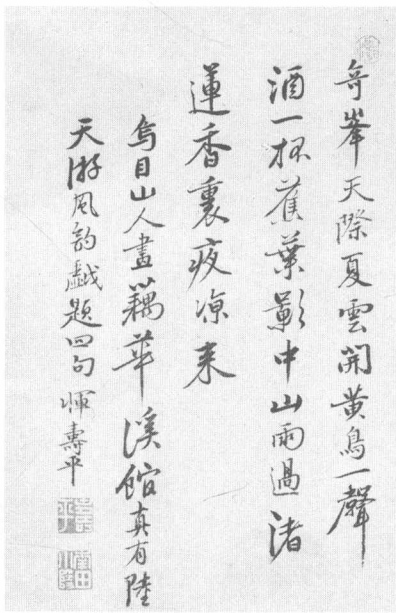 奇峯天際夏雲開黃鳥一聲
酒一杯蕉葉影中山雨過渚
蓮香裏夜凉来
烏目山人畫藕華溪館真有陸
天游風韵戲題四句惲壽平